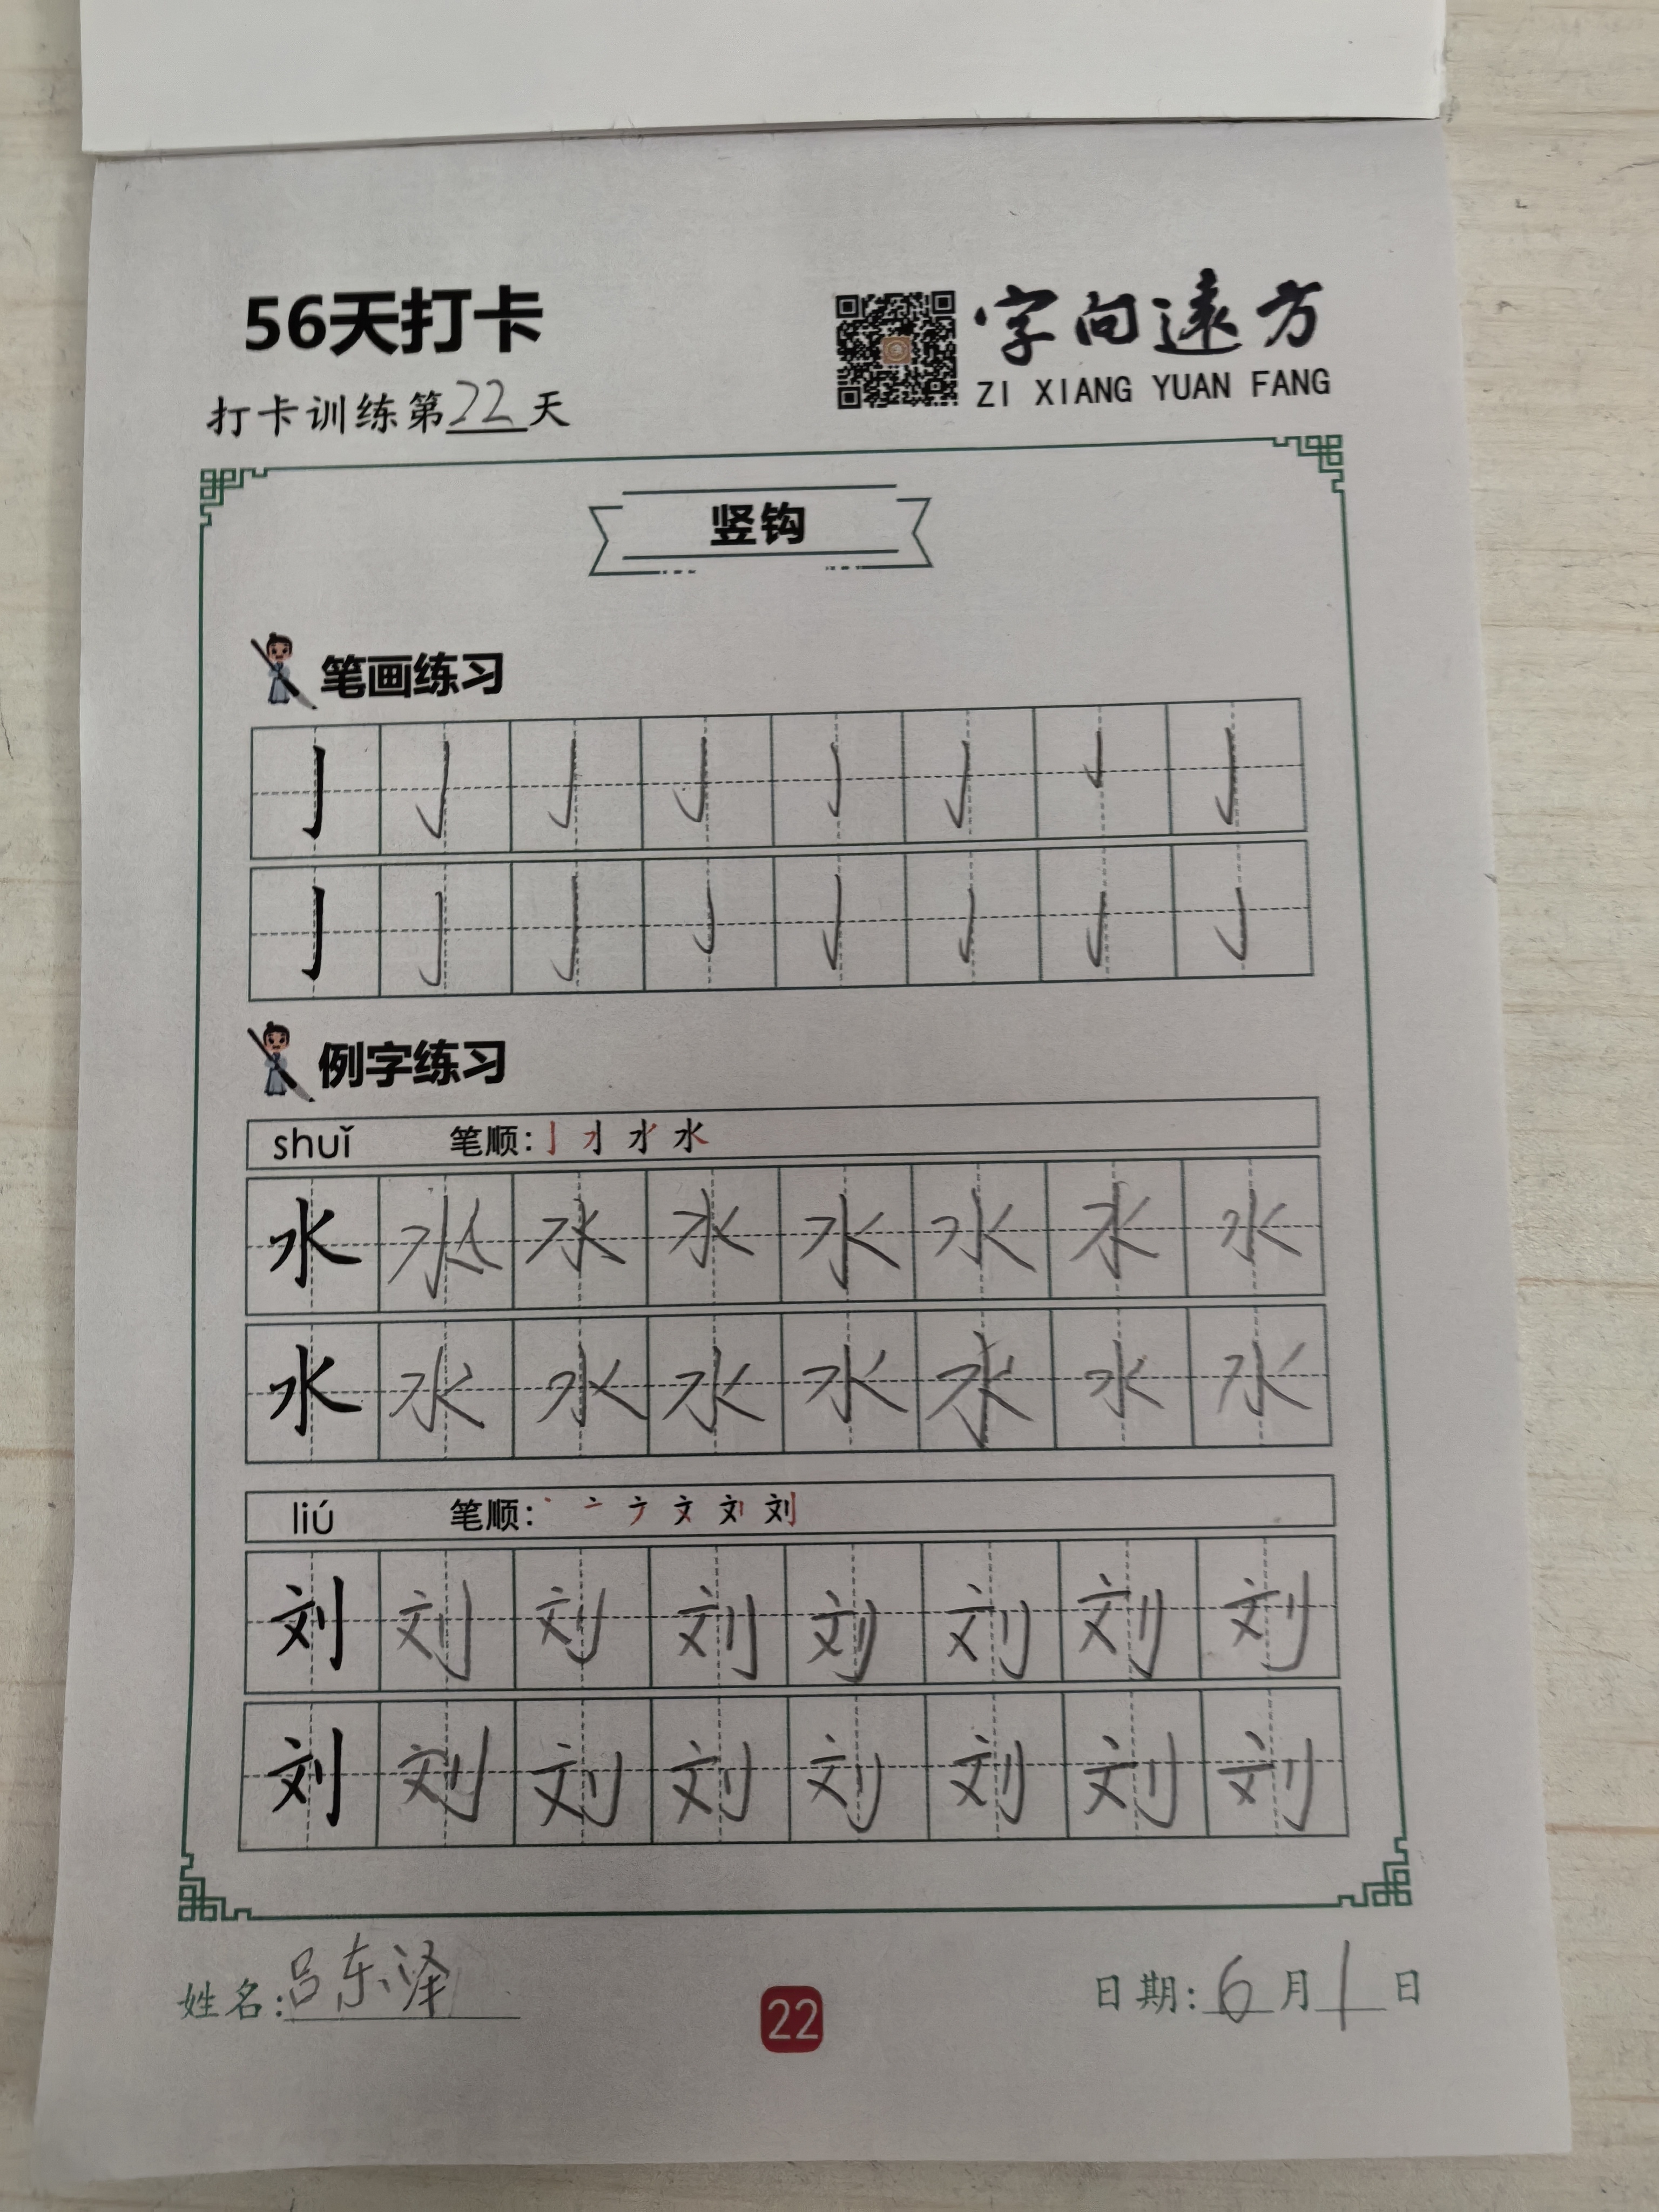 56天打卡
字向遠方
ZI XIANG YUAN FANG
打卡训练第22天
竖钩
笔画练习
亅亅亅亅亅亅亅亅
亅亅亅亅亅亅亅亅
例字练习
shuǐ 笔顺:
水水水水水水水水
水水水水水水水水
liú 笔顺:
刘刘刘刘刘刘刘刘
刘刘刘刘刘刘刘刘
姓名:吕东泽
22
日期:6月1日